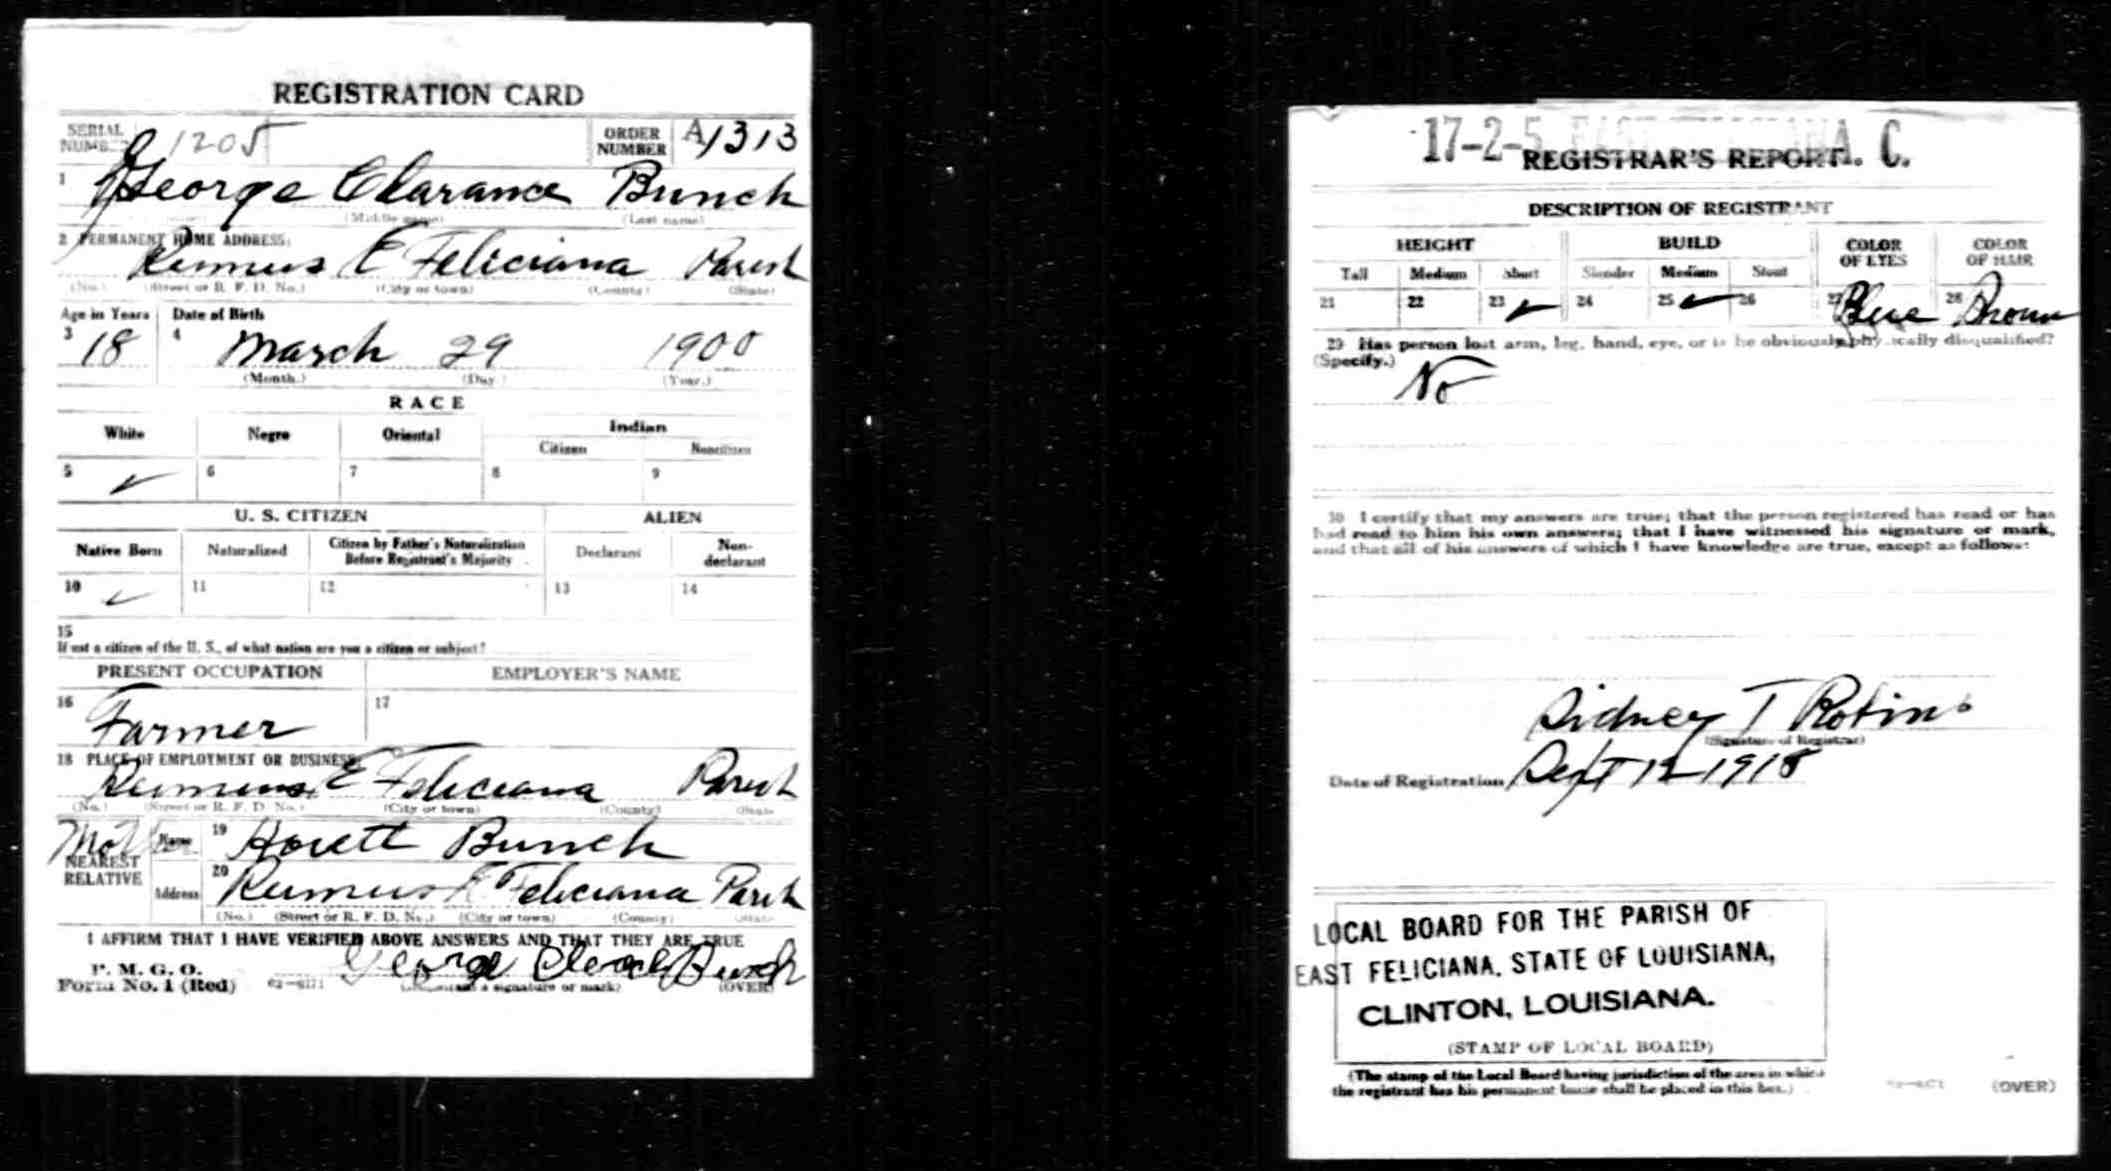 REGISTRATION CARD
SERIAL NUMBER 1205 ORDER NUMBER A1313
1 George Clarance Bunch
(Middle name) (Last name)
2 PERMANENT HOME ADDRESS:
Remus E Feliciana Parish
(No.) (Street or R. F. D. No.) (City or town) (County) (State)
Age in Years Date of Birth
3 18 4 March 29 1900
(Month.) (Day.) (Year.)
RACE
White Negro Oriental Indian
Citizen Noncitizen
5 ✓ 6 7 8 9
U. S. CITIZEN ALIEN
Native Born Naturalized Citizen by Father's Naturalization Before Registrant's Majority Declarant Non-declarant
10 ✓ 11 12 13 14
15
If not a citizen of the U. S., of what nation are you a citizen or subject?
PRESENT OCCUPATION EMPLOYER'S NAME
16 Farmer 17
18 PLACE OF EMPLOYMENT OR BUSINESS:
Remus E Feliciana Parish
(No.) (Street or R. F. D. No.) (City or town) (County) (State)
NEAREST RELATIVE Name 19 Bunch
Address 20 Remus E Feliciana Parish
(No.) (Street or R. F. D. No.) (City or town) (County) (State)
I AFFIRM THAT I HAVE VERIFIED ABOVE ANSWERS AND THAT THEY ARE TRUE
P. M. G. O.
Form No. 1 (Red) George Bunch
signature or mark) (OVER)
17-2-5 A. C.
REGISTRAR'S REPORT
DESCRIPTION OF REGISTRANT
HEIGHT BUILD COLOR OF EYES COLOR OF HAIR
Tall Medium Short Slender Medium Stout
21 22 23 ✓ 24 25 ✓ 26 27 Blue 28 Brown
29 Has person lost arm, leg, hand, eye, or is he obviously physically disqualified?
(Specify.) No
30 I certify that my answers are true; that the person registered has read or has
had read to him his own answers; that I have witnessed his signature or mark,
and that all of his answers of which I have knowledge are true, except as follows:
Sidney T Robins
(Signature of Registrar)
Date of Registration Sept 12 1918
LOCAL BOARD FOR THE PARISH OF
EAST FELICIANA, STATE OF LOUISIANA,
CLINTON, LOUISIANA.
(STAMP OF LOCAL BOARD)
(The stamp of the Local Board having jurisdiction of the area in which
the registrant has his permanent home shall be placed in this box.)
(OVER)